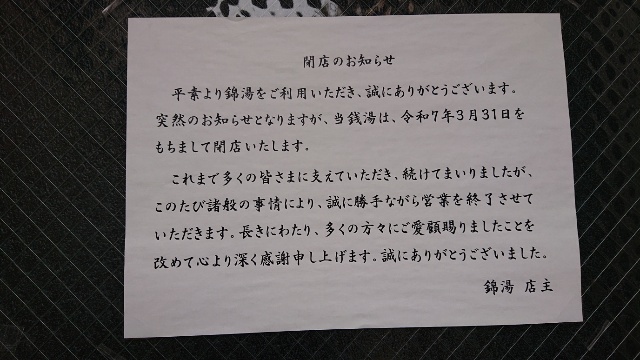 閉店のお知らせ
平素より錦湯をご利用いただき、誠にありがとうございます。
突然のお知らせとなりますが、当銭湯は、令和7年3月31日を
もちまして閉店いたします。
これまで多くの皆さまに支えていただき、続けてまいりましたが、
このたび諸般の事情により、誠に勝手ながら営業を終了させて
いただきます。長きにわたり、多くの方々にご愛顧賜りましたことを
改めて心より深く感謝申し上げます。誠にありがとうございました。
錦湯 店主